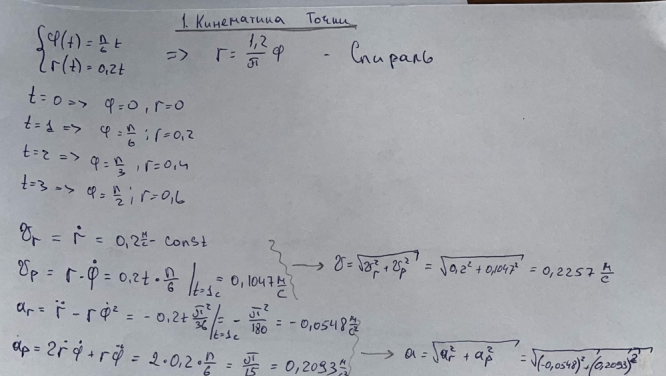 1. Кинематика Точки
φ(t) = π/6 t
r(t) = 0,2t => r = 1,2/π φ - Спираль
t=0 => φ=0, r=0
t=1 => φ=π/6; r=0,2
t=2 => φ=π/3, r=0,4
t=3 => φ=π/2; r=0,6
υr = ṙ = 0,2 м/с - const
υp = r·φ̇ = 0,2t·π/6 |t=1c = 0,1047 м/с → υ = √(υr² + υp²) = √(0,2² + 0,1047²) = 0,2257 м/с
ar = r̈ - rφ̇² = -0,2t π²/36 |t=1c = -π²/180 = -0,0548 м/с²
ap = 2ṙφ̇ + rφ̈ = 2·0,2·π/6 = π/15 = 0,2093 м → a = √(ar² + ap²) = √((-0,0548)² + (0,2093)²)